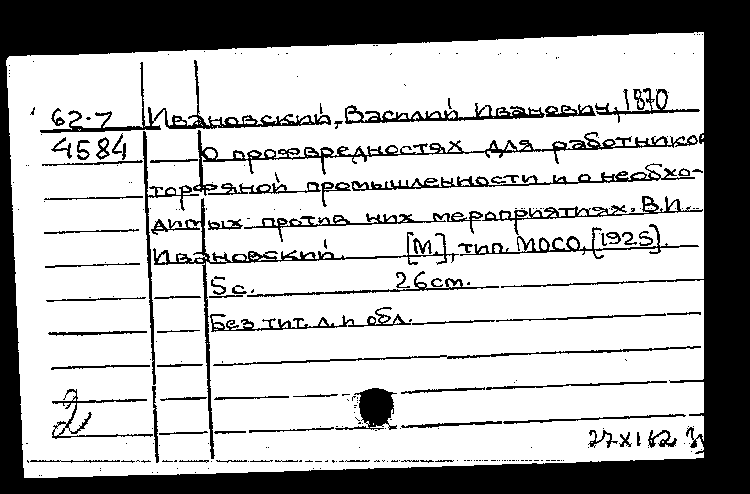 62-7 Ивановский, Василий Иванович, 1870
4584 О профвредностях для работников
торфяной промышленности и о необхо-
димых против них мероприятиях. В.И.
Ивановский. [М.], тип. МОСО, [1925].
5 с. 26 cm.
Без тит. л. и обл.
2
27 XI 62